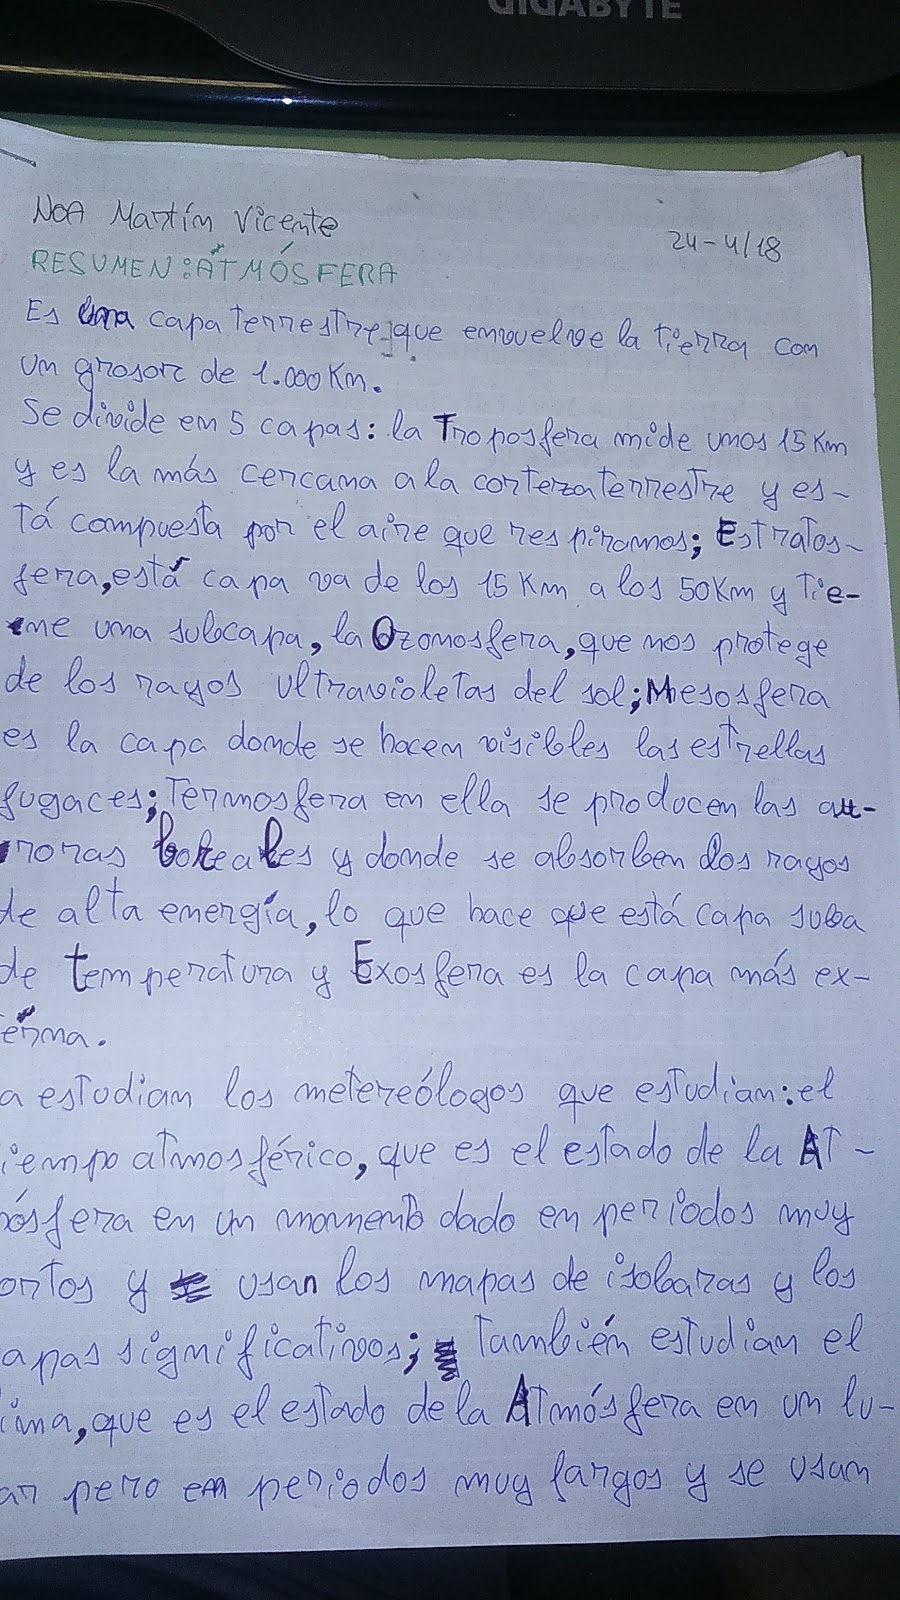 GIGABYTE
NOA Martín Vicente
24-4/18
RESUMEN: ATMÓSFERA
Es una capa terrestre, que envuelve la tierra con
un grosor de 1.000 Km.
Se divide en 5 capas: la Troposfera mide unos 15 Km
y es la más cercana a la corteza terrestre y es-
tá compuesta por el aire que respiramos; Estratos-
fera, está capa va de los 15 Km a los 50 Km y tie-
ne una subcapa, la Ozonosfera, que nos protege
de los rayos ultravioletas del sol; Mesosfera
es la capa donde se hacen visibles las estrellas
fugaces; Termosfera en ella se producen las au-
roras boreales y donde se absorben los rayos
de alta energía, lo que hace que está capa suba
de temperatura y Exosfera es la capa más ex-
térna.
a estudian los metereólogos que estudian: el
iempo atmosférico, que es el estado de la At-
mósfera en un momento dado en periodos muy
ortos y usan los mapas de isobaras y los
apas significativos; también estudian el
lima, que es el estado de la Atmósfera en un lu-
ar pero en periodos muy largos y se usan